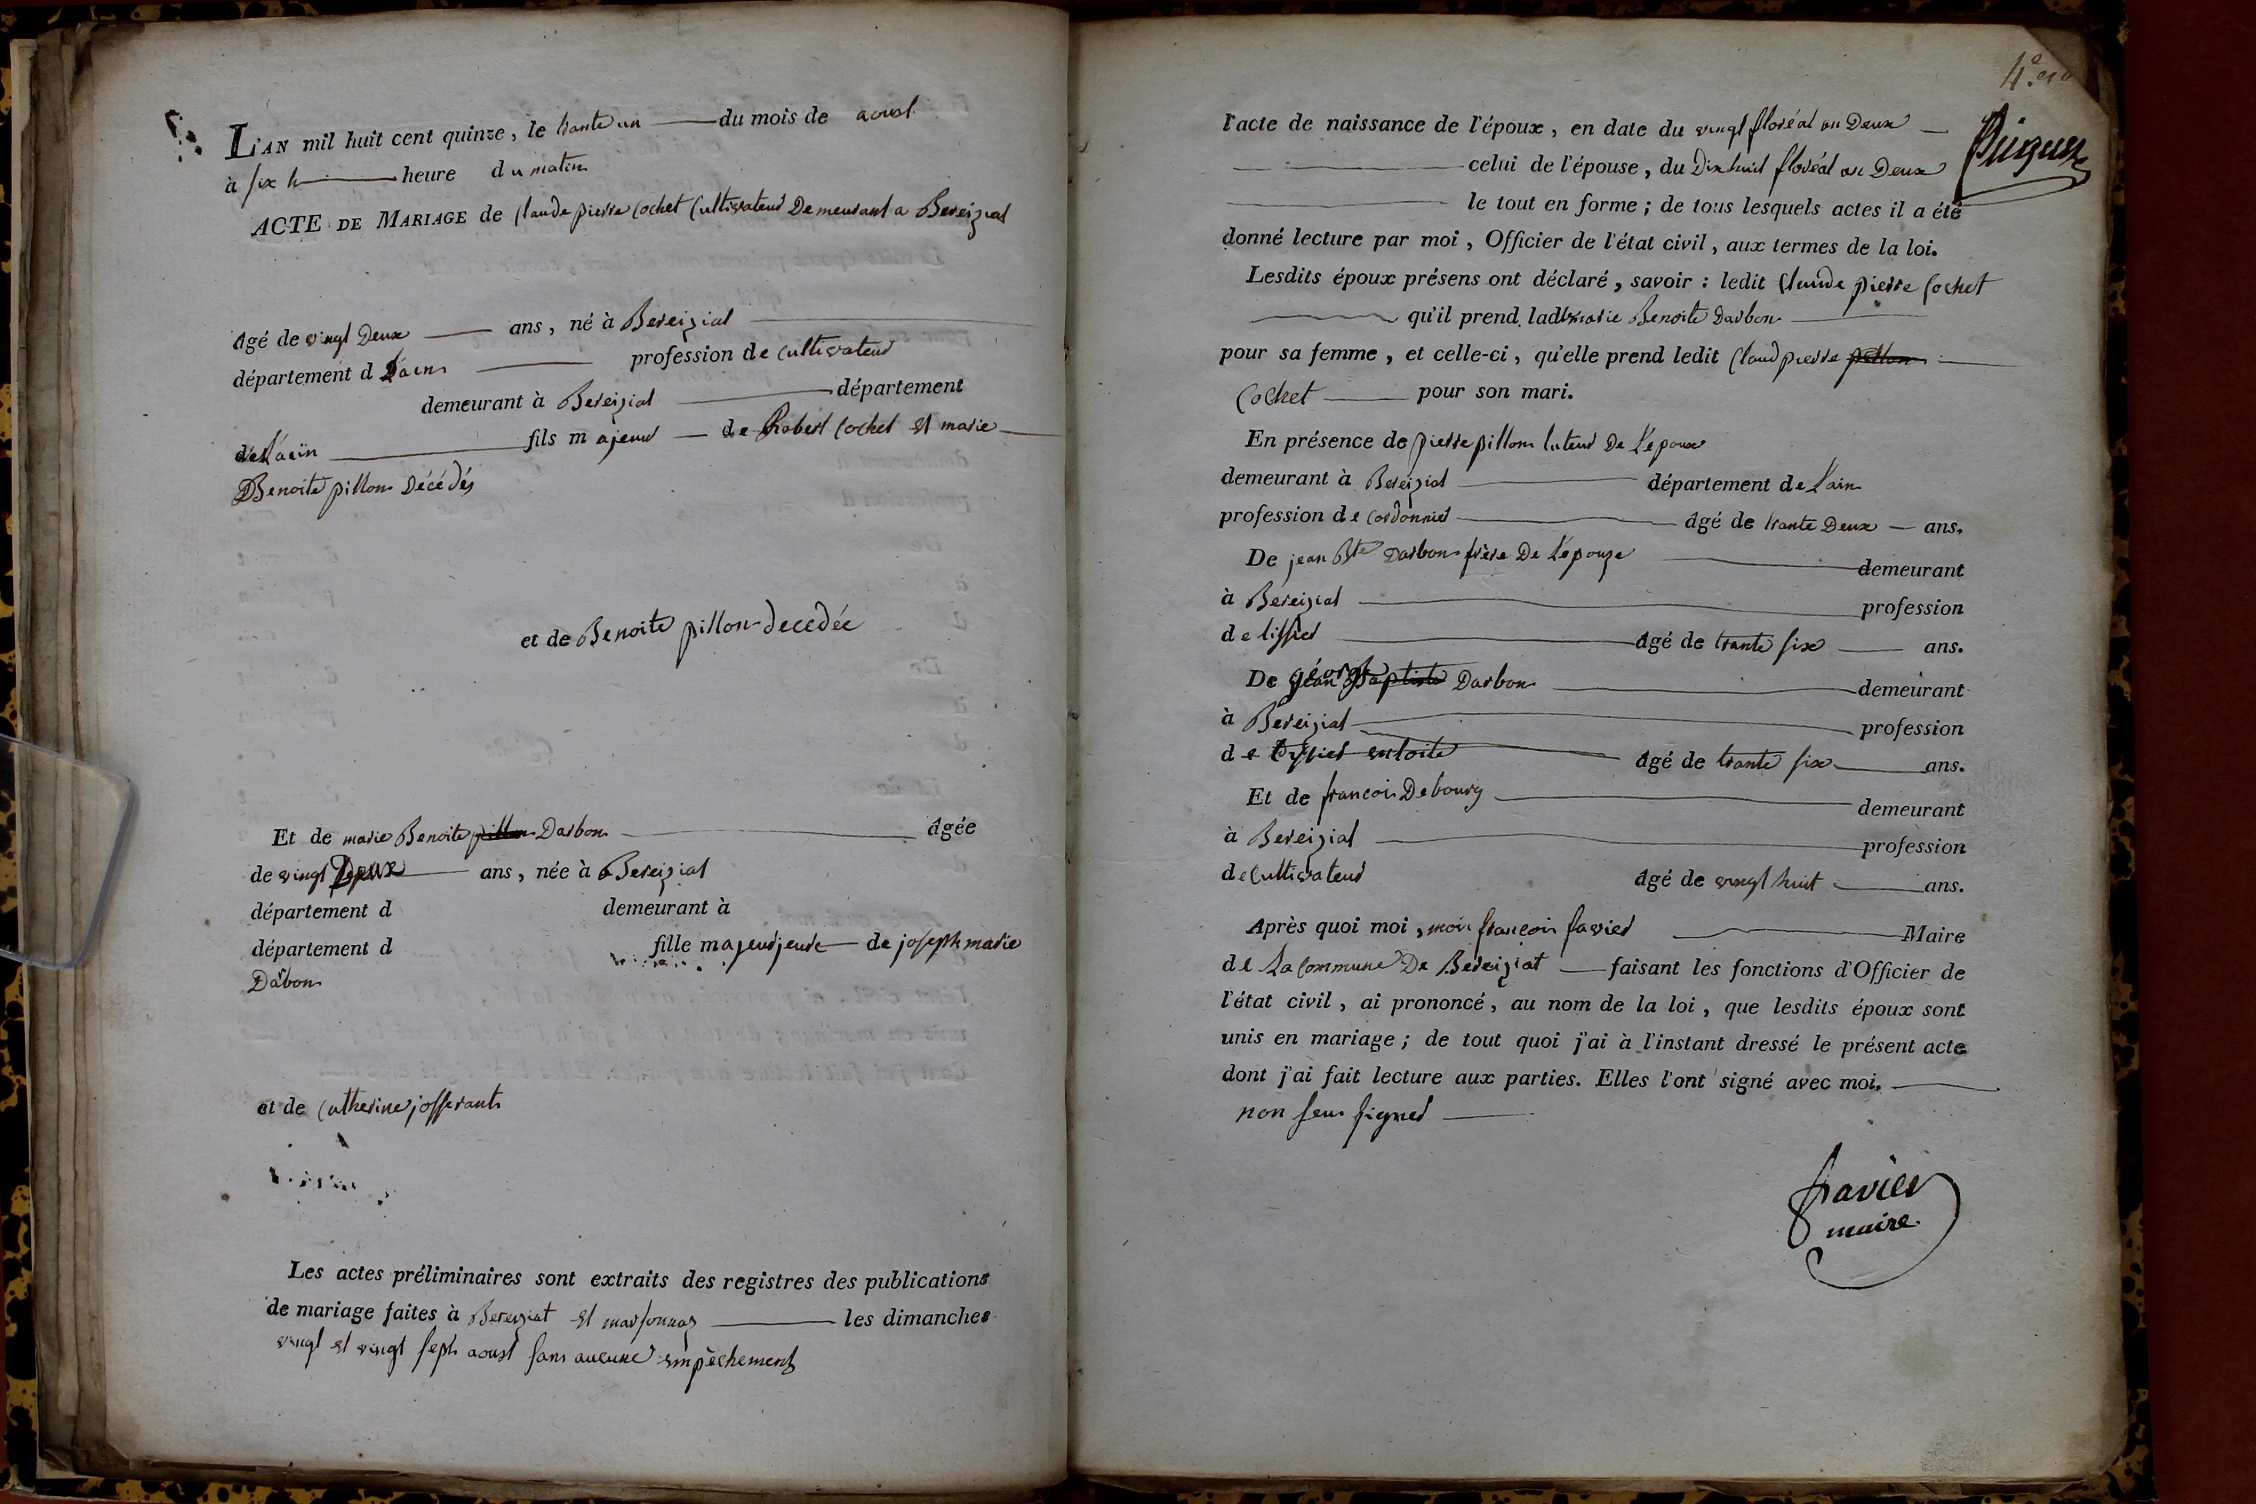 L'AN mil huit cent quinze, le trante un du mois de aoust
à six h heure du matin
ACTE DE MARIAGE de Claude pierre Cochet Cultivateur Demeurant a Bereiziat
âgé de vingt Deux ans, né à Bereiziat
département d L'ain profession de cultivateur
demeurant à Bereiziat département
de L'ain fils majeur de Robert Cochet et marie
Benoite pillon Décédés
et de Benoite pillon decedée
Et de marie Benoite pillon Darbon âgée
de vingt Deux ans, née à Bereiziat
département d demeurant à
département d fille majeur de joseph marie
Darbon
et de Catherine josserant
Les actes préliminaires sont extraits des registres des publications
de mariage faites à Bereiziat et marsonnaz les dimanches
vingt et vingt sept aoust sans aucune empêchement
4.e
Puguet
l'acte de naissance de l'époux, en date du vingt floréal an Deux
celui de l'épouse, du Dixhuit floréal an Deux
le tout en forme; de tous lesquels actes il a été
donné lecture par moi, Officier de l'état civil, aux termes de la loi.
Lesdits époux présens ont déclaré, savoir: ledit Claude pierre Cochet
qu'il prend ladte marie Benoite Darbon
pour sa femme, et celle-ci, qu'elle prend ledit Claud pierre pillon
Cochet pour son mari.
En présence de pierre pillon tuteur De L'epoux
demeurant à Bereiziat département de L'ain
profession de cordonnier âgé de trante Deux ans.
De jean Bte Darbon frère De L'épouze demeurant
à Bereiziat profession
de tissier âgé de trante six ans.
De géorge jean Baptiste Darbon demeurant
à Bereiziat profession
de tissier entoite âgé de trante six ans.
Et de francois Debourg demeurant
à Bereiziat profession
de Cultivateur âgé de vingt huit ans.
Après quoi moi, moi francois favier Maire
de La Commune De Bereiziat faisant les fonctions d'Officier de
l'état civil, ai prononcé, au nom de la loi, que lesdits époux sont
unis en mariage; de tout quoi j'ai à l'instant dressé le présent acte
dont j'ai fait lecture aux parties. Elles l'ont signé avec moi.
non seu signer
favier
maire